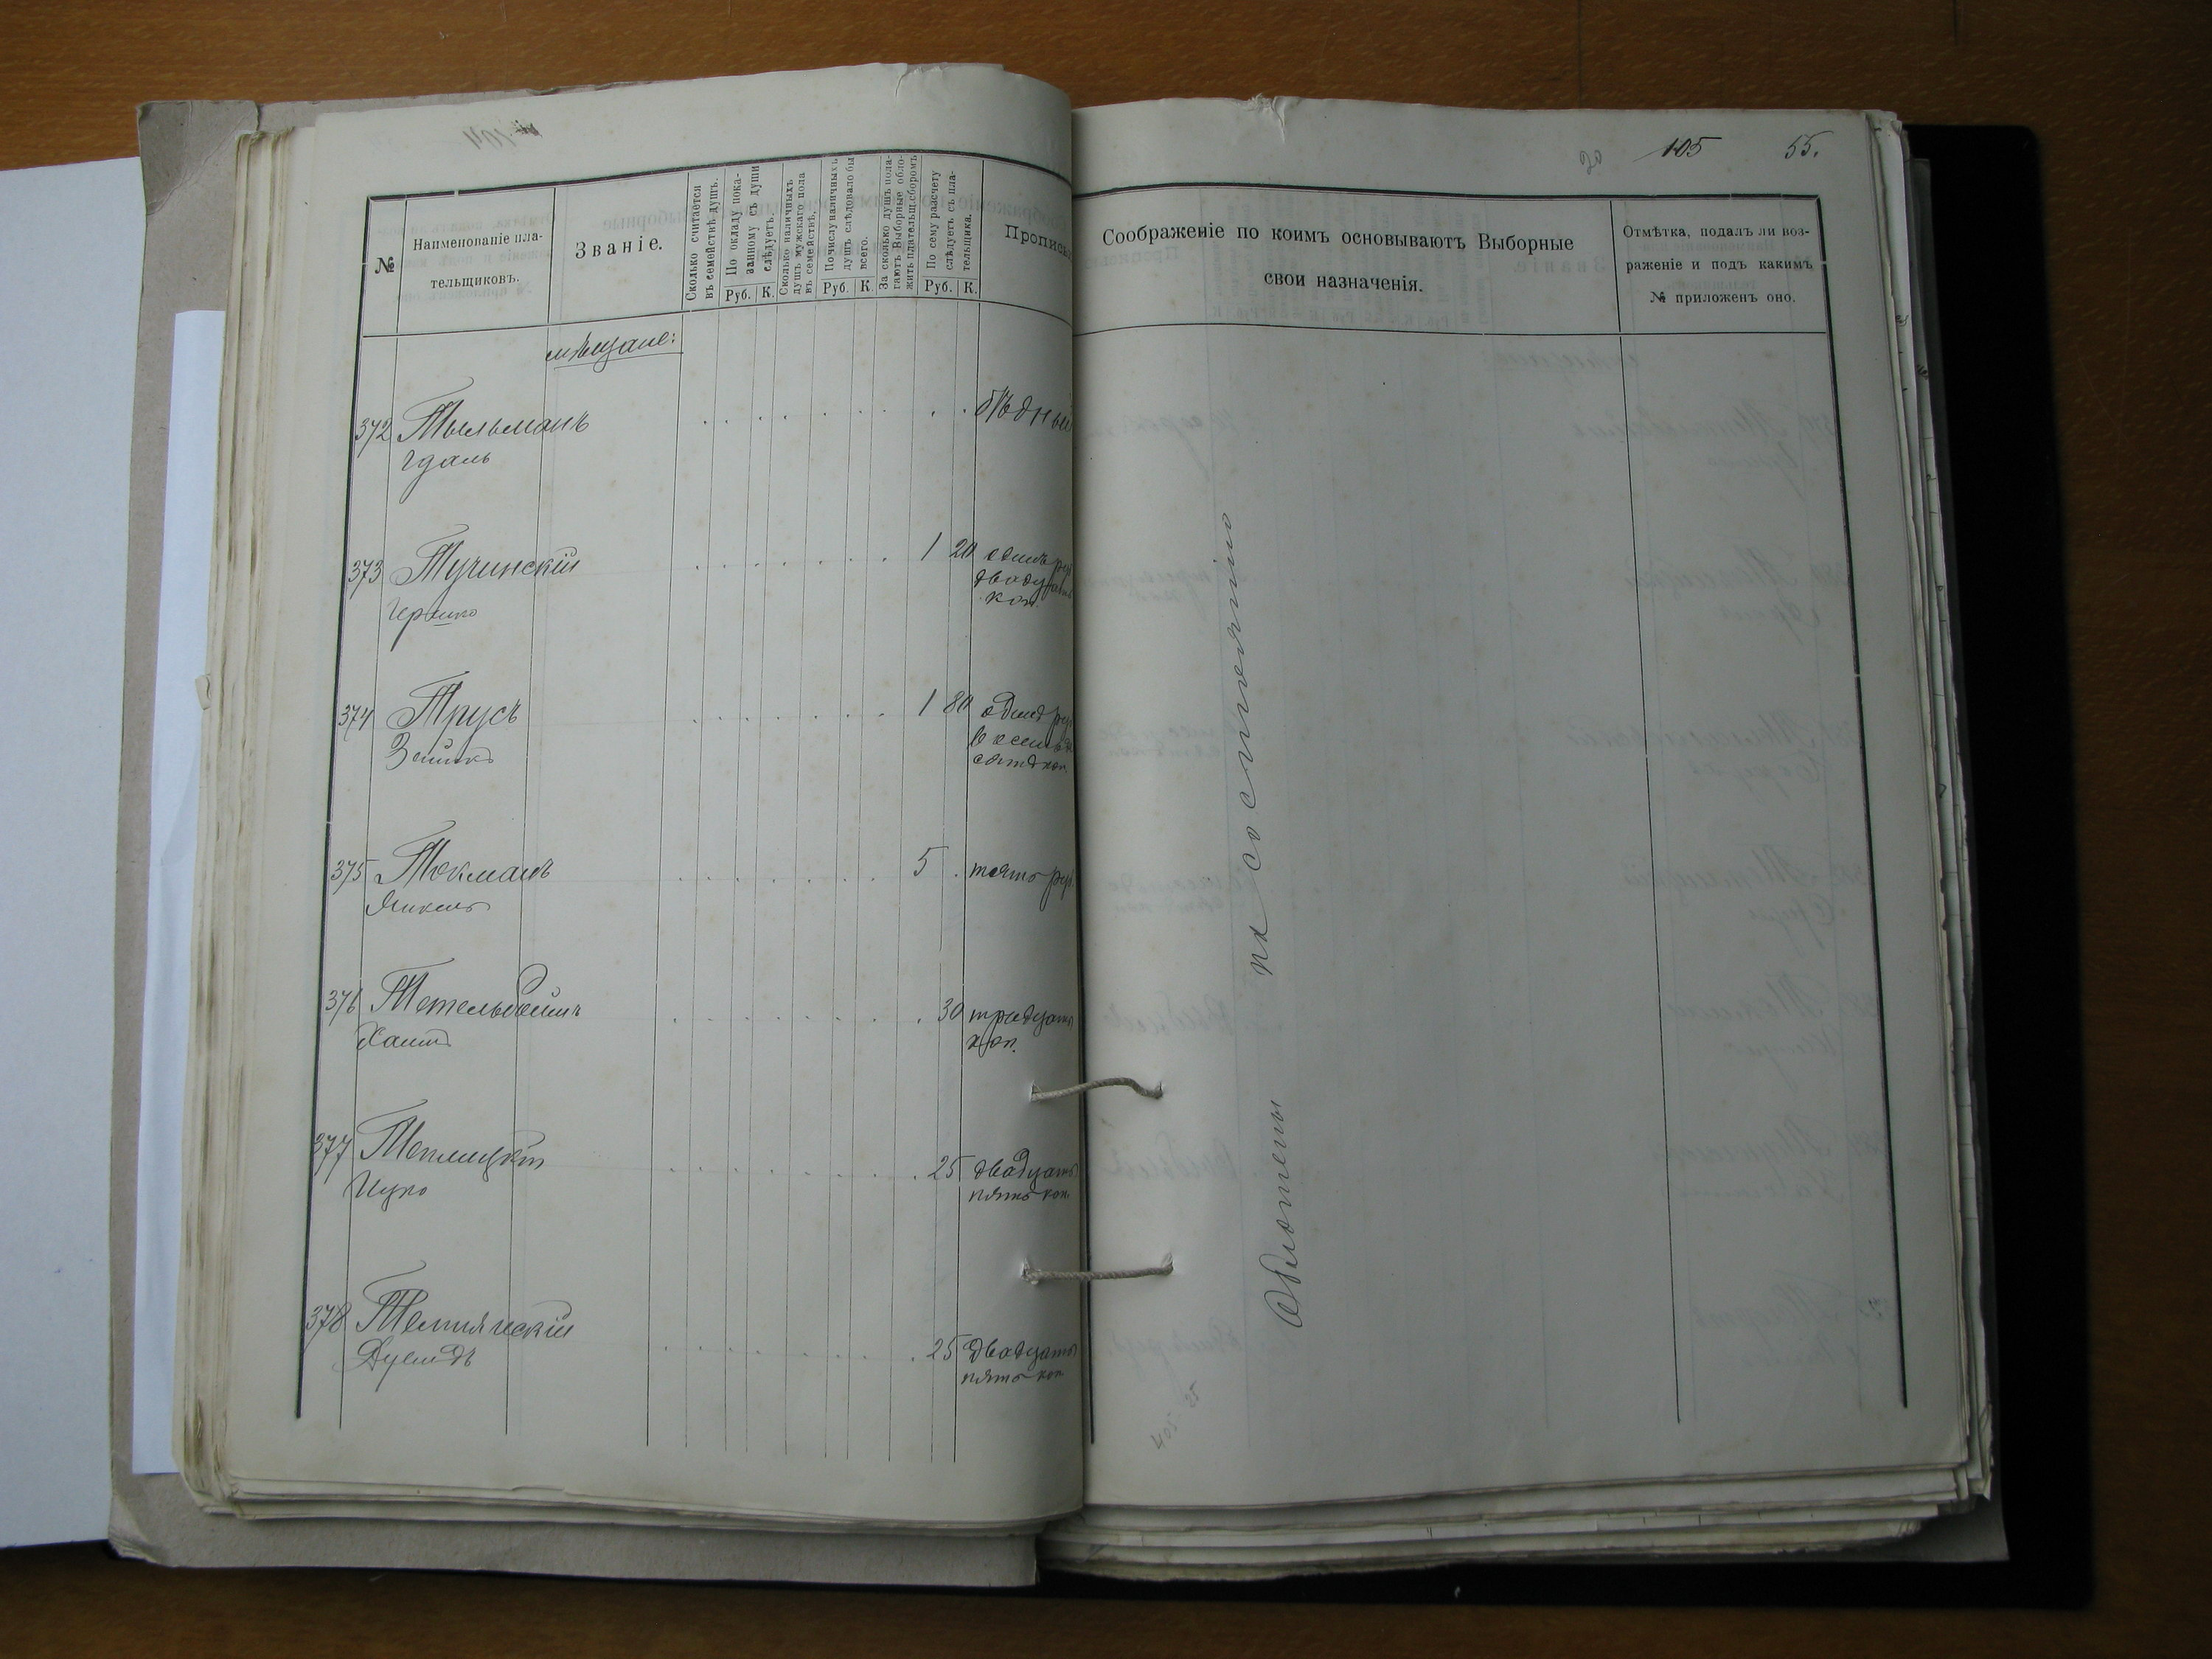 104
20 105 55.
№
Наименованіе пла-
тельщиковъ.
Званіе.
Сколько считается
въ семействѣ душъ.
По окладу пока-
занному съ души
слѣдуетъ.
Руб. К.
Сколько наличныхъ
душъ мужскаго пола
въ семействѣ.
По числу наличныхъ
душъ слѣдовало бы
всего.
Руб. К.
За сколько душъ пола-
гаютъ Выборные обло-
жить плательщ. сборомъ
По сему разсчету
слѣдуетъ съ пла-
тельщика.
Руб. К.
Прописью
Соображеніе по коимъ основываютъ Выборные
свои назначенія.
Отмѣтка, подалъ ли воз-
раженіе и подъ какимъ
№ приложенъ оно.
мѣщане:
372 Тыльманъ бѣдный
Гдаль
373 Тучинскій 1 20 одинъ руб
двадцать
коп.
Гершко
374 Трусъ 1 80 одинъ руб
восемьде
сятъ коп.
Зейликъ
375 Токманъ 5 пять руб.
Янкель
376 Тетельбеймъ 30 тридцать
коп.
Хаимъ
377 Теплицкій 25 двадцать
пять коп.
Ицко
378 Темпянскій 25 двадцать
пять коп
Дувидъ
Обложены по состоянію